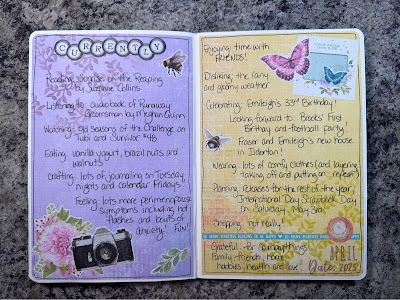 CURRENTLY
Reading: Sunrise on the Reaping
by Suzanne Collins
Listening to: audiobook of Runaway
Groomsman by Meghan Quinn
Watching: old seasons of The Challenge on
Tubi and Survivor 48
Eating: vanilla yogurt, brazil nuts and
walnuts
Crafting: lots of journaling on Tuesday
nights and calendar Fridays
Feeling: lots more perimenopause
symptoms including hot
flashes and bouts of
anxiety! FUN!
Enjoying: time with
FRIENDS!
Disliking: the rainy
and gloomy weather
Celebrating: Emileigh's 33rd Birthday!
Looking forward to: Brooks' First
Birthday and football party!
Fraser and Emileigh's new house
in Ilderton!
Wearing: lots of comfy clothes (and layering,
taking off and putting on repeat)
Planning: releases for the rest of the year
International Day Scrapbook Day
on Saturday, May 3rd
Shopping: not really
Grateful: for so many things
Family, friends, home,
hobbies, health and love!
APRIL
Date: 2025